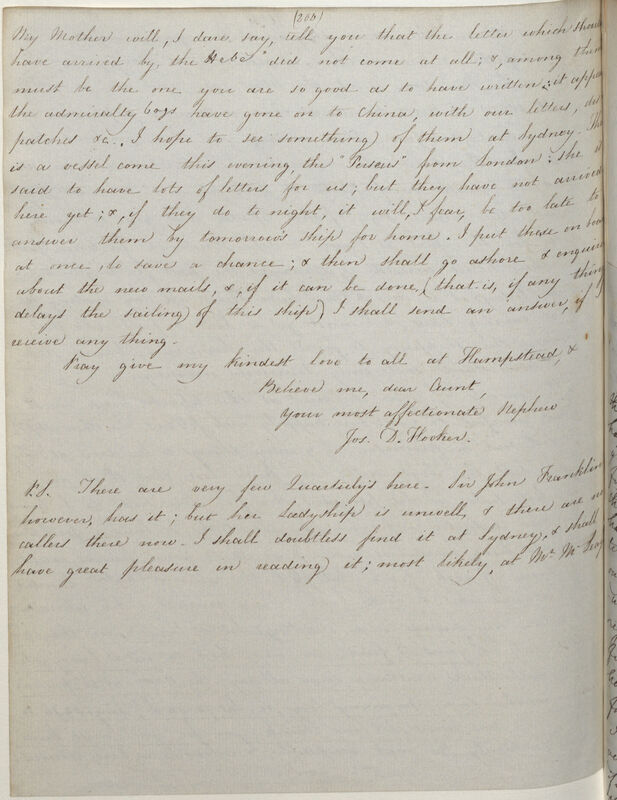 (200)
My Mother will, I dare say, tell you that the letter which should
have arrived by, the Hebe" did not come at all; &, among them
must be the one you are so good as to have written; it appe
the admiralty bags have gone on to China, with our letters, des
patches &c.. I hope to see something of them at Sydney. The
is a vessel come this evening, the "Perseus" from London: she is
said to have lots of letters for us; but they have not arrived
here yet; &, if they do to night, it will, I fear, be too late to
answer them by tomorrow's ship for home. I put these on boa
at once, to save a chance; & then shall go ashore & enquire
about the new mails, &, if it can be done, (that is, if any thing
delays the sailing of this ship) I shall send an answer, if I
receive any thing.
Pray give my kindest love to all at Hampstead, &
Believe me, dear Aunt,
Your most affectionate Nephew
Jos. D. Hooker.
P.S. There are very few Quarterly's here. Sir John Franklin
however, has it; but her Ladyship is unwell, & there are no
callers there now. I shall doubtless find it at Sydney, & shall
have great pleasure in reading it; most likely, at Mr. Mc